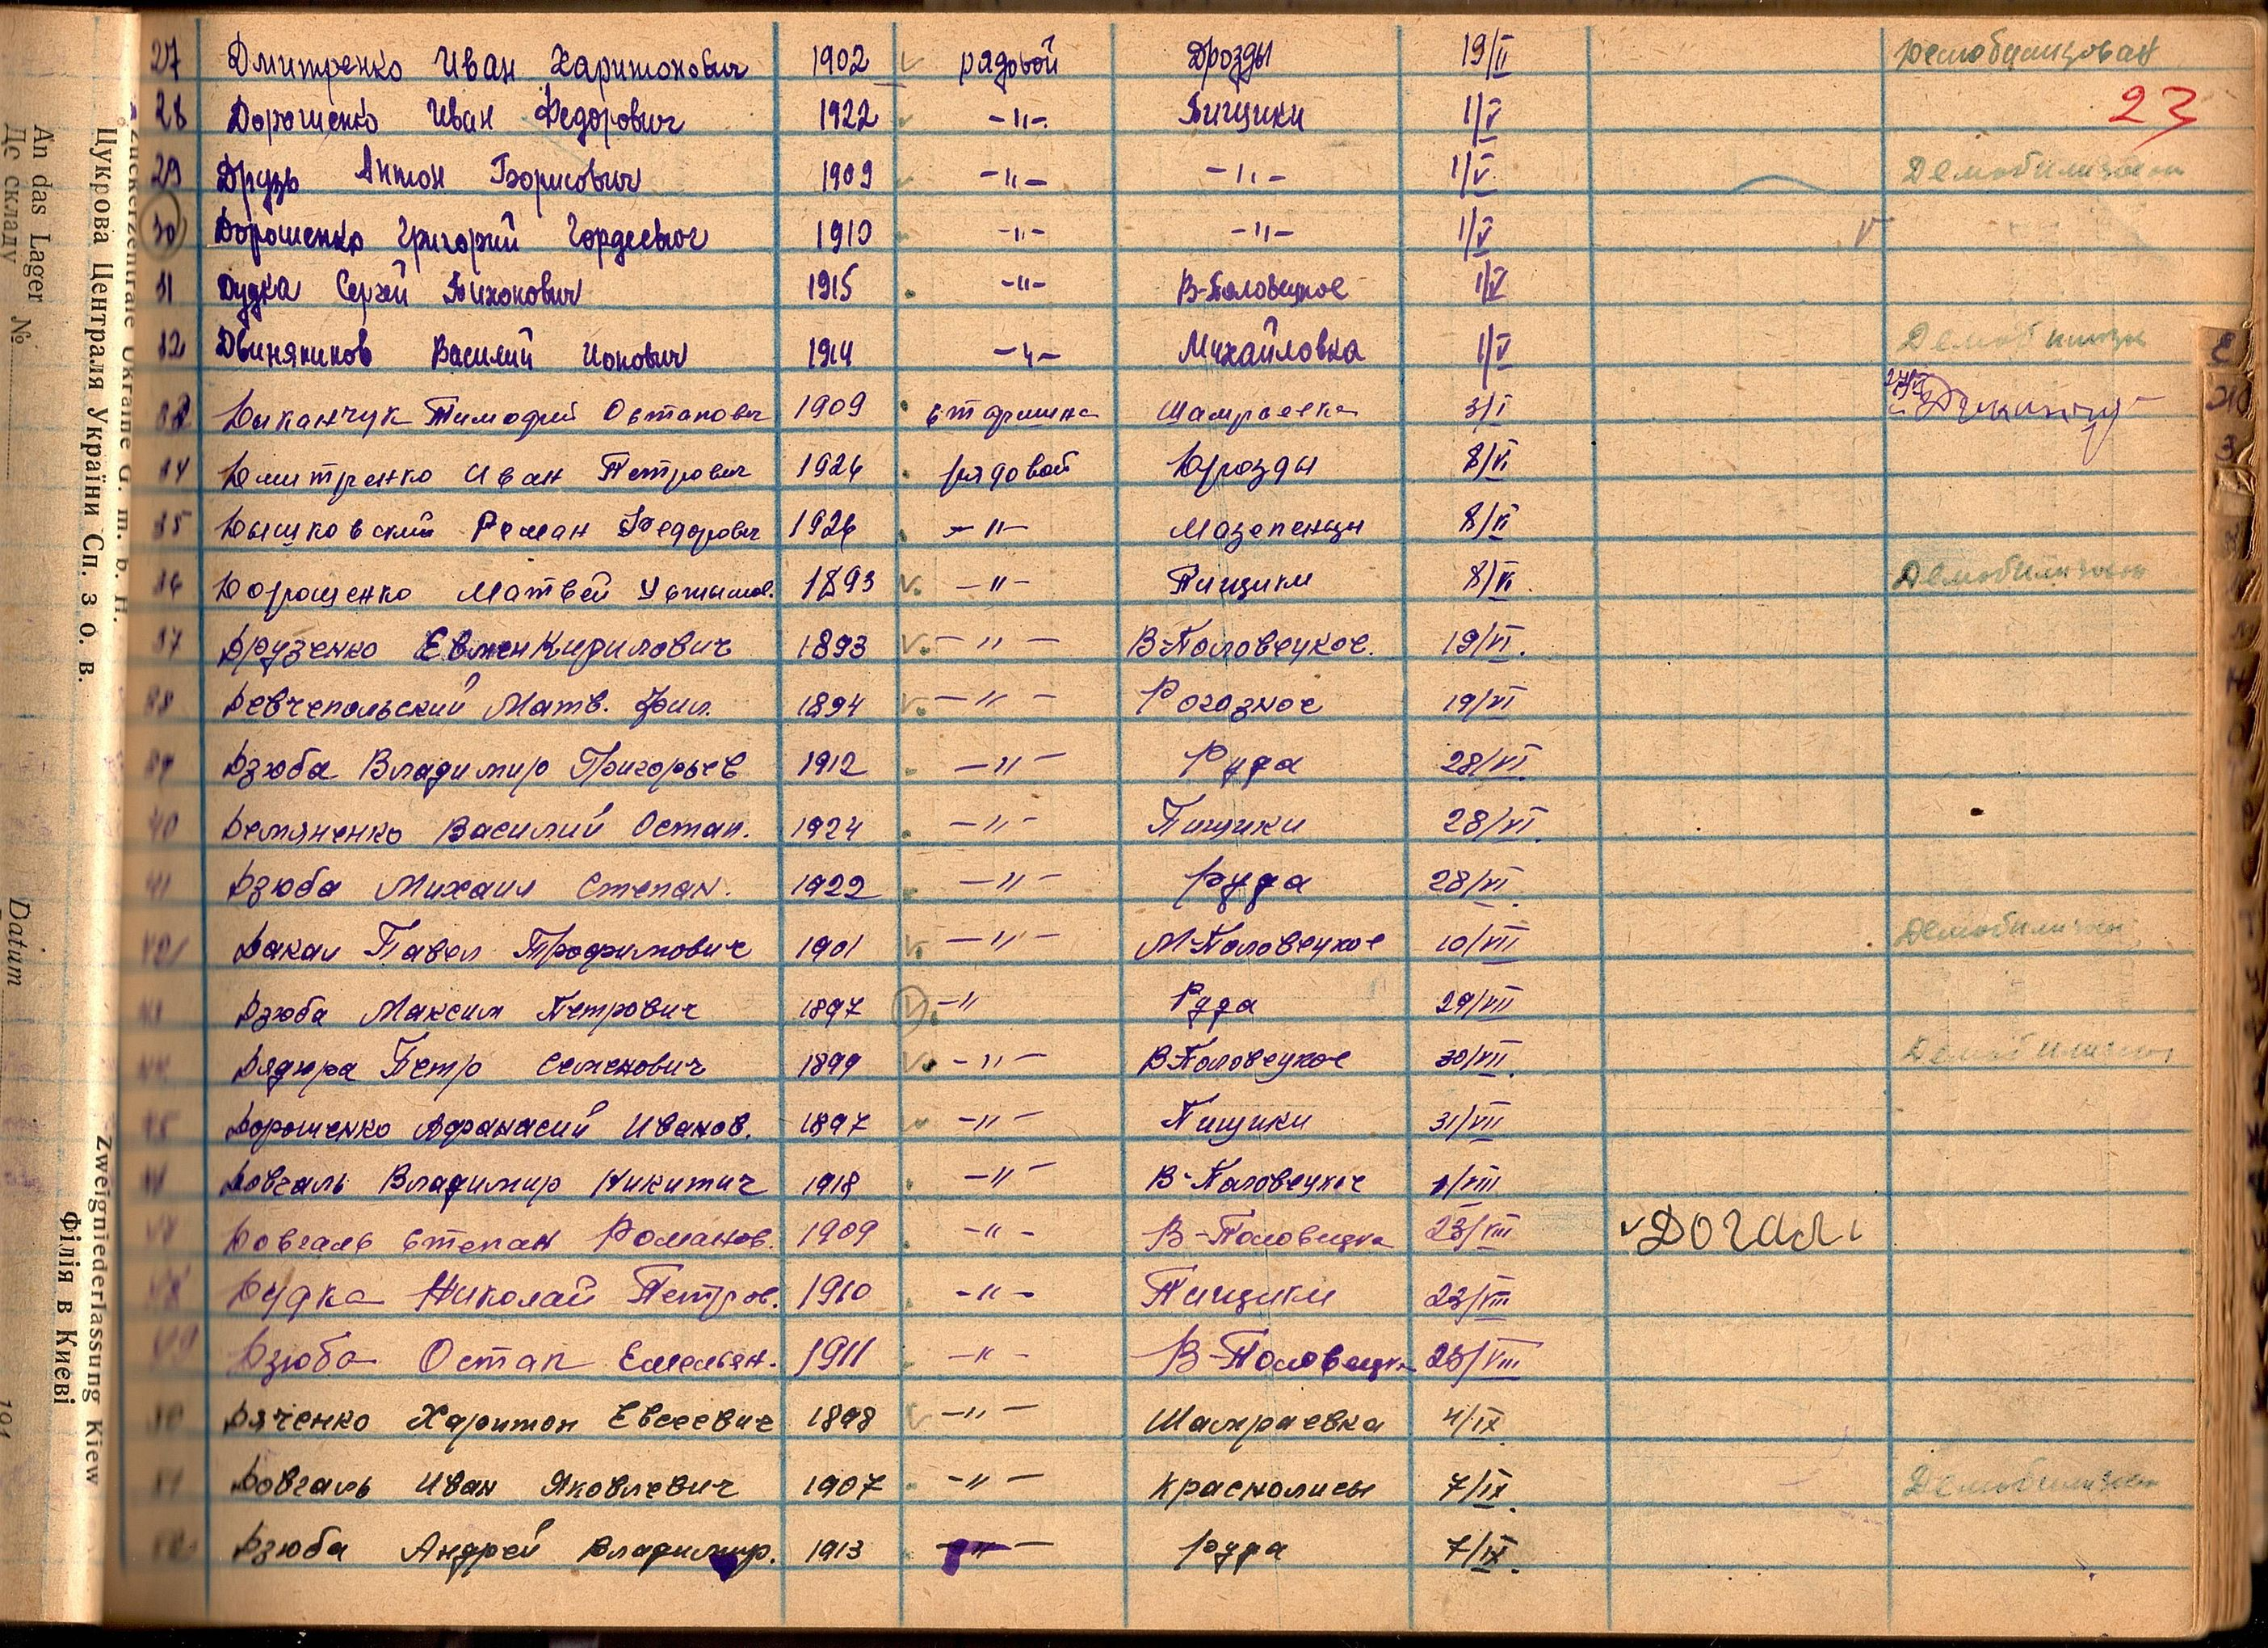 27 Дмитренко Иван Харитонович 1902 рядовой Дрозды 19/II демобилизован
23
28 Дорошенко Иван Федорович 1922 -"- Пищики 1/V
29 Друзь Антон Борисович 1909 -"- -"- 1/V Демобилизован
30 Дорошенко Григорий Гордеевич 1910 -"- -"- 1/V
31 Дудка Сергей Тихонович 1915 -"- В-Половецкое 1/V
32 Двиняников Василий Ионович 1914 -"- Михайловка 1/V
33 Диканчук Тимофей Остапович 1909 старшина Шамраевка 3/I
34 Дмитренко Иван Петрович 1926 рядовой Дрозды 8/VI
35 Дышковский Роман Федорович 1926 -"- Мазепенцы 8/VI
36 Дорошенко Матвей 1893 -"- Пищики 8/VI Демобилизован
37 Друзенко Евмен Кирилович 1893 -"- В-Половецкое. 19/VI.
38 Девчепольский Матв. Фил. 1894 -"- Рогозное 19/VI
39 Дзюба Владимир Григорьев 1912 -"- Руда 28/VI.
40 Демяненко Василий Остап. 1924 -"- Пищики 28/VI.
41 Дзюба Михаил Степан. 1922 -"- Руда 28/VI.
42 Дакал Павел Трофимович 1901 -"- М-Половецкое 10/VII
43 Дзюба Максим Петрович 1897 -" Руда 29/VII
44 Дядюра Петр Семенович 1899 -"- В-Половецкое 30/VII. Демобилизован
45 Дорошенко Афанасий Иванов. 1897 -"- Пищики 31/VII
46 Довгаль Владимир Никитич 1918 -"- В-Половецкое 1/VIII
47 Довгаль Степан Романов. 1909 -"- В-Половецка 23/VIII Догаль
48 Дудка Николай Петров. 1910 -"- Пищики 23/VIII
49 Дзюба Остап Емельян. 1911 -"- В-Половецка 23/VIII
50 Дяченко Харитон Евсеевич 1898 -"- Шамраевка 4/IX
51 Довгаль Иван Яковлевич 1907 -"- Краснолисы 7/IX. Демобилизован
52 Дзюба Андрей Владимир. 1913 -"- Руда 7/IX.
Zuckerzentrale Ukraine G. m. b. H.
Цукрова Централя України Сп. з о. в.
An das Lager №
До складу
Datum
Zweigniederlassung Kiew
Філія в Києві
194
Е
Ж
З